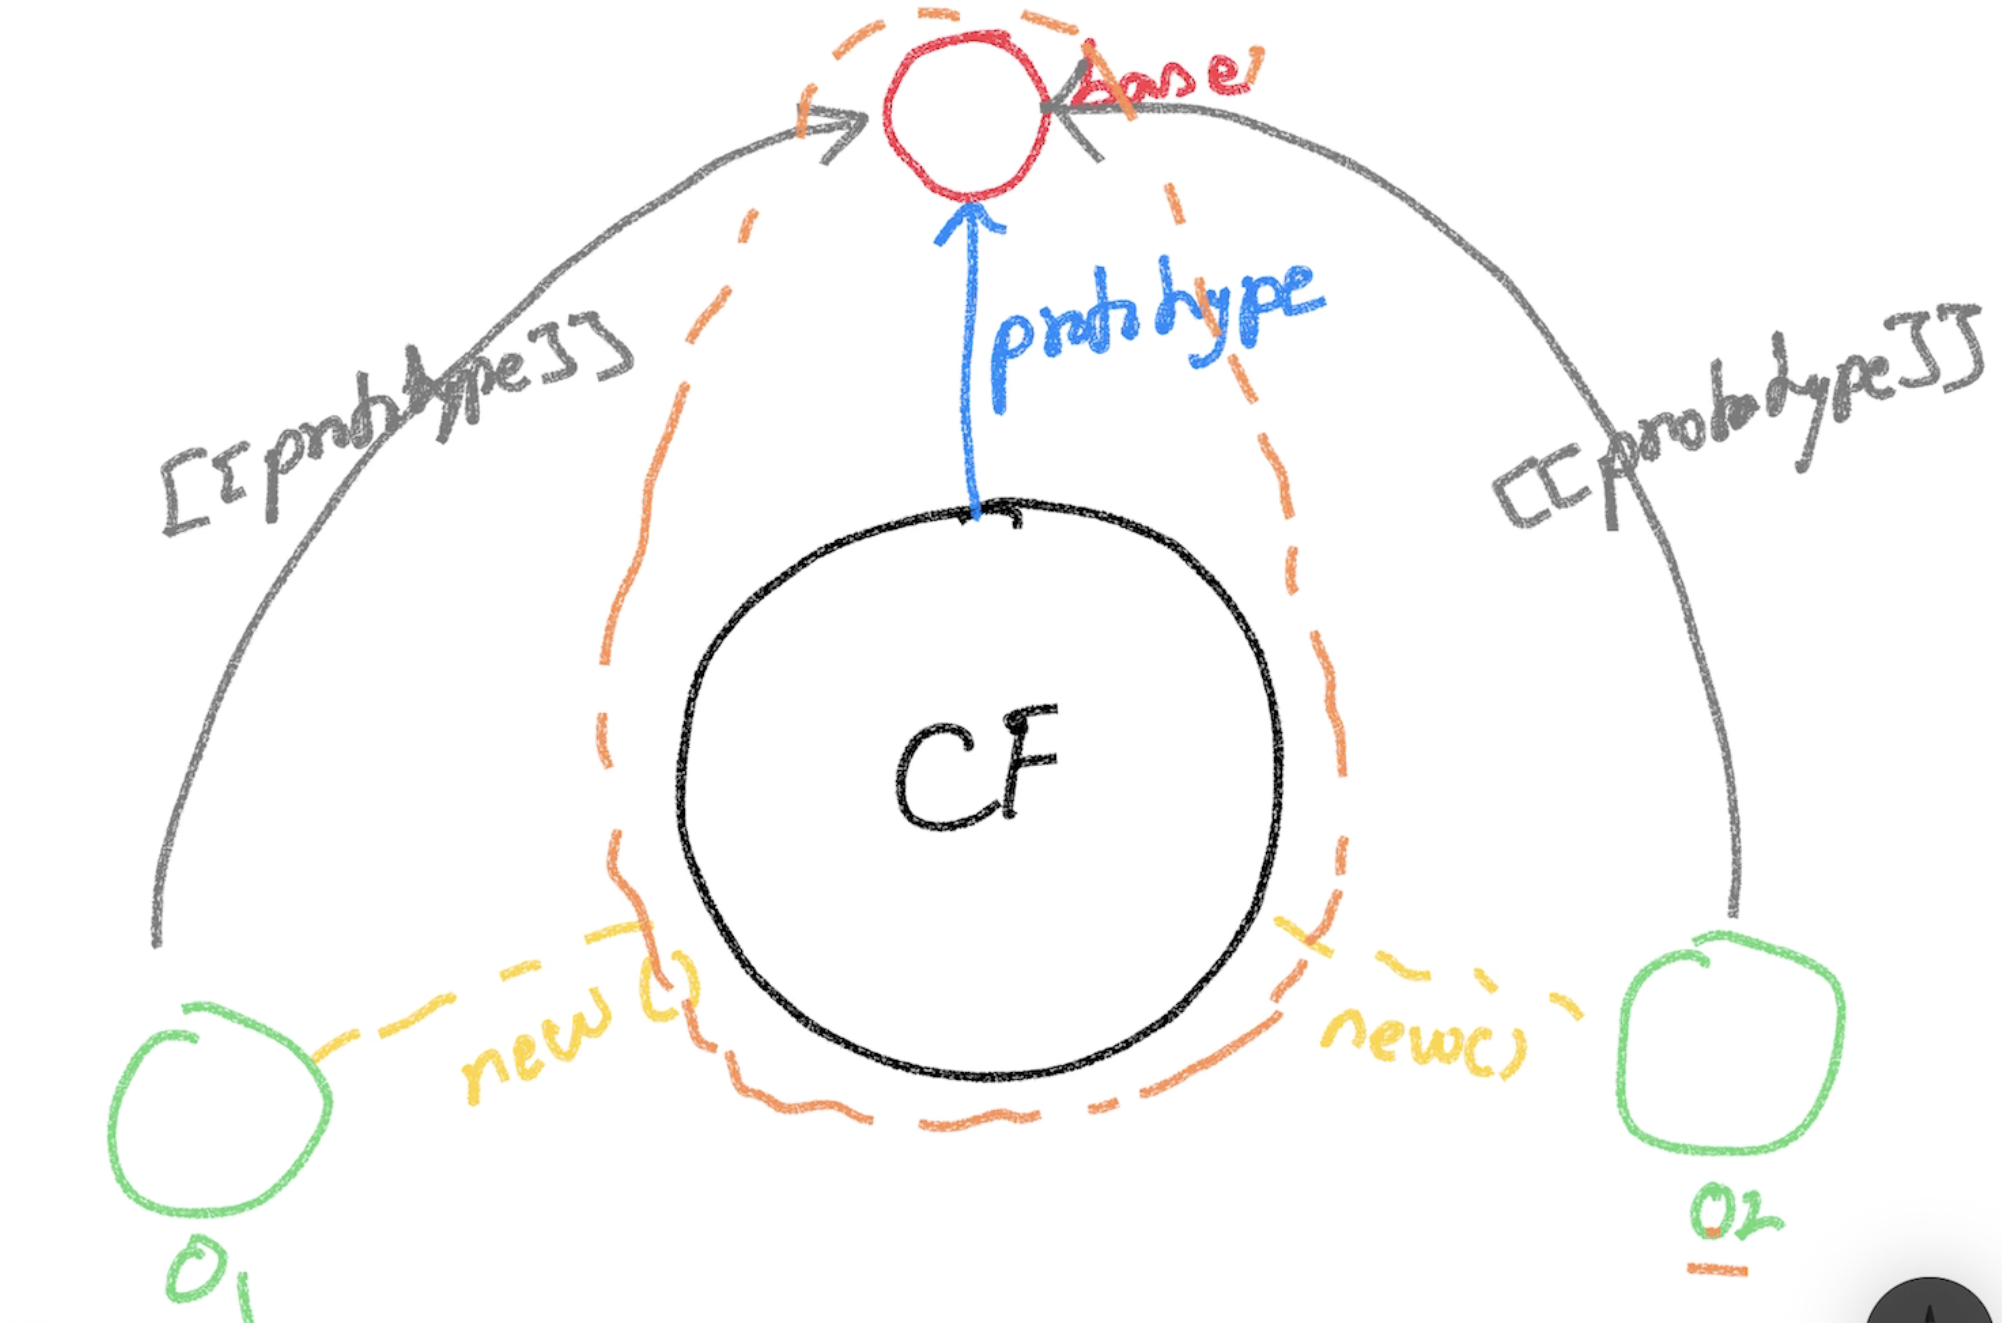 base
prototype
[[prototype]]
[[prototype]]
CF
new ()
new()
O1
O2